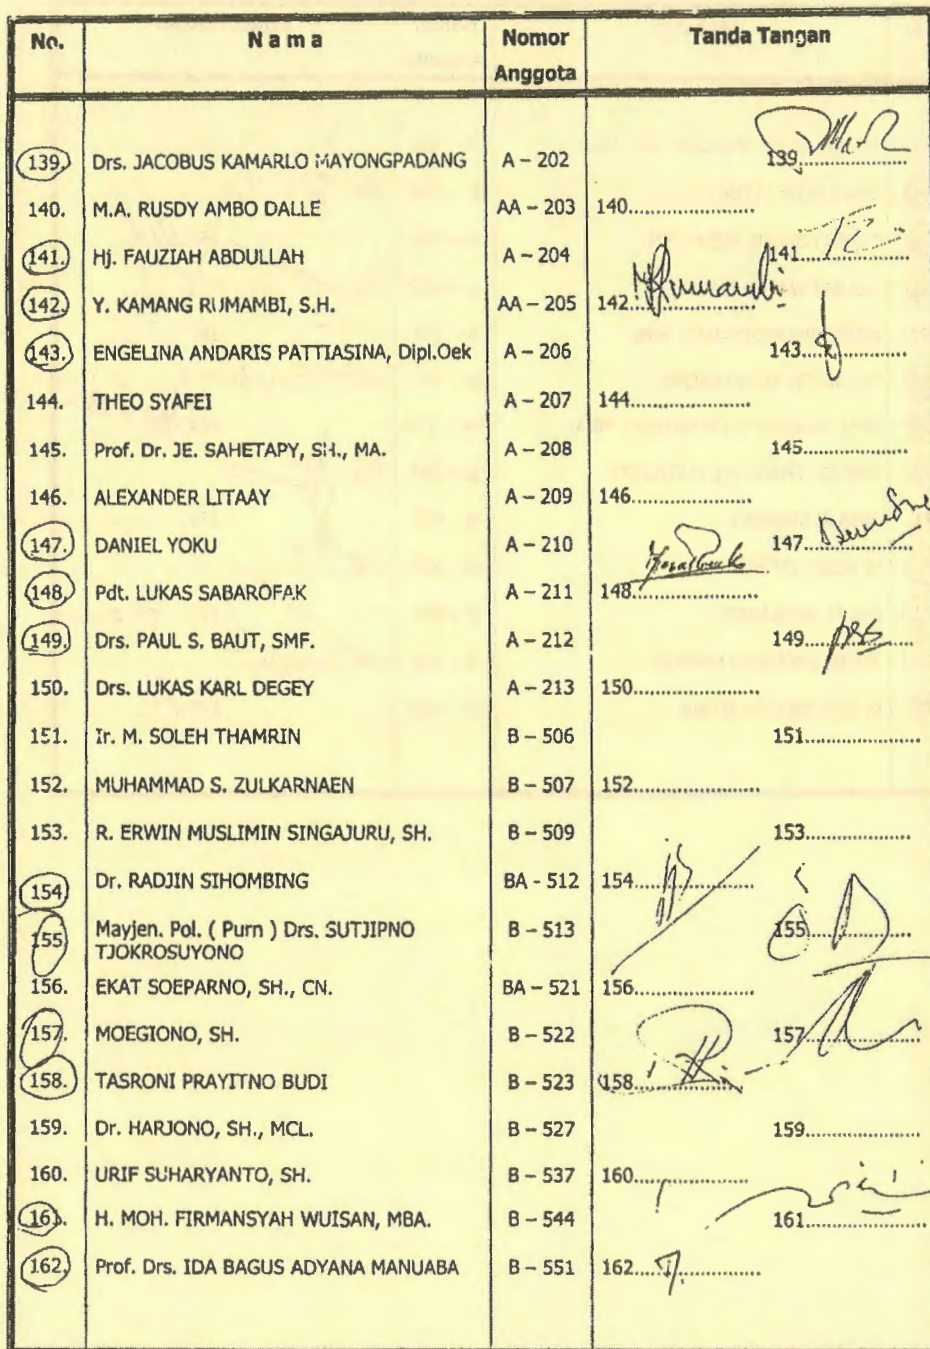 No. Nama Nomor Anggota Tanda Tangan
139. Drs. JACOBUS KAMARLO MAYONGPADANG A – 202 139....................
140. M.A. RUSDY AMBO DALLE AA – 203 140......................
141. Hj. FAUZIAH ABDULLAH A – 204 141....................
142. Y. KAMANG RUMAMBI, S.H. AA – 205 142...................... Rumambi
143. ENGELINA ANDARIS PATTIASINA, Dipl.Oek A – 206 143....................
144. THEO SYAFEI A – 207 144.....................
145. Prof. Dr. JE. SAHETAPY, SH., MA. A – 208 145...................
146. ALEXANDER LITAAY A – 209 146.....................
147. DANIEL YOKU A – 210 147....................
148. Pdt. LUKAS SABAROFAK A – 211 148.....................
149. Drs. PAUL S. BAUT, SMF. A – 212 149....................
150. Drs. LUKAS KARL DEGEY A – 213 150......................
151. Ir. M. SOLEH THAMRIN B – 506 151.....................
152. MUHAMMAD S. ZULKARNAEN B – 507 152......................
153. R. ERWIN MUSLIMIN SINGAJURU, SH. B – 509 153...................
154. Dr. RADJIN SIHOMBING BA - 512 154......................
155. Mayjen. Pol. ( Purn ) Drs. SUTJIPNO B – 513 155....................
TJOKROSUYONO
156. EKAT SOEPARNO, SH., CN. BA – 521 156.....................
157. MOEGIONO, SH. B – 522 157.....................
158. TASRONI PRAYITNO BUDI B – 523 158...................
159. Dr. HARJONO, SH., MCL. B – 527 159.....................
160. URIF SUHARYANTO, SH. B – 537 160....................
161. H. MOH. FIRMANSYAH WUISAN, MBA. B – 544 161......................
162. Prof. Drs. IDA BAGUS ADYANA MANUABA B – 551 162......................